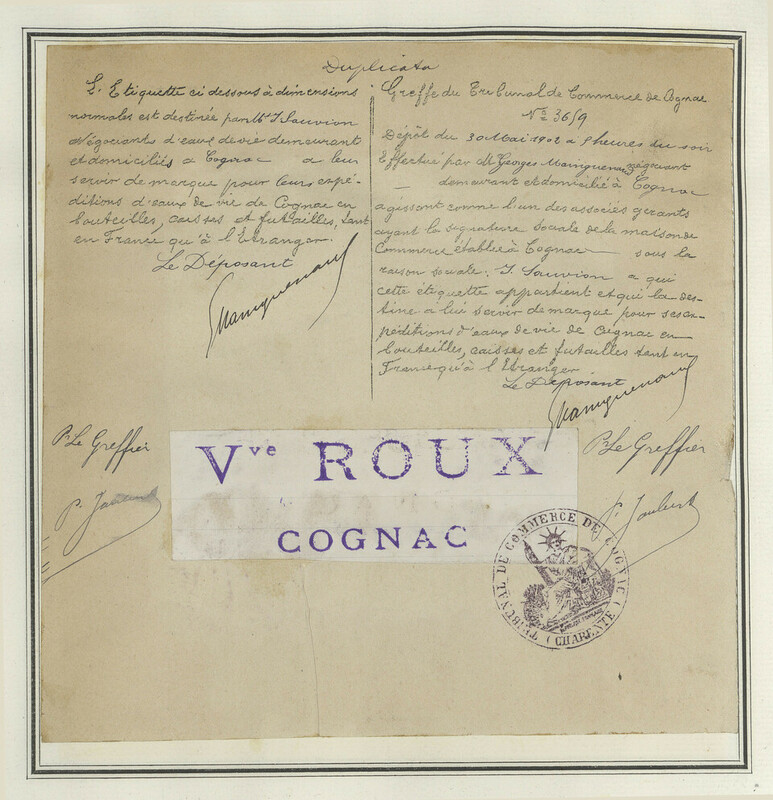 Duplicata
L'Etiquette ci dessous à dimensions
normales est destinée par Mr J Sauvion
Négociants d'eaux de vie demeurant
et domiciliés à Cognac à leur
servir de marque pour leurs expé-
ditions d'eaux de vie de Cognac en
bouteilles, caisses et futailles, tant
en France qu'à l'Etranger.
Le Déposant
Greffe du Tribunal de Commerce de Cognac
No 3619
Dépôt du 30 Mai 1902 à 9 heures du soir
Effectué par Mr Georges négociant
demeurant et domicilié à Cognac
agissant comme l'un des associés gérants
ayant la signature sociale de la maison de
Commerce établie à Cognac sous la
raison sociale: J. Sauvion à qui
cette étiquette appartient et qui la des-
tine à lui servir de marque pour ses ex-
péditions d'eaux de vie de Cognac en
bouteilles, caisses et futailles tant en
France qu'à l'Etranger
Le Déposant
Pr Le Greffier
P. Jaubert
Vve ROUX
COGNAC
Pr Le Greffier
P. Jaubert
TRIBUNAL DE COMMERCE DE COGNAC (CHARENTE)